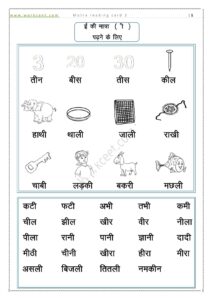 www.worksent.com Matra reading card 3
ई की मात्रा ( ी )
पढ़ने के लिए
3 20 30
तीन बीस तीस कील
हाथी थाली जाली राखी
चाबी लड़की बकरी मछली
कटी फटी अभी तभी कमी
चील झील खीर वीर नीला
पीला रानी पानी ज्ञानी दादी
मीठी चीनी खीरा हीरा मीरा
असली बिजली तितली नमकीन